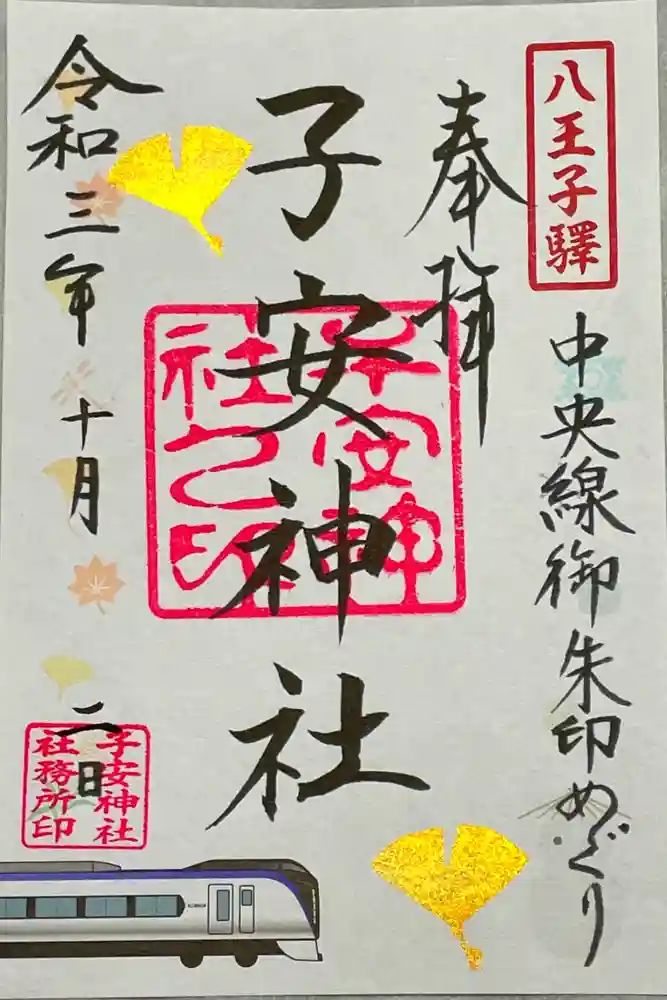 八王子驛
中央線御朱印めぐり
奉拝
子安神社
子安神社之印
令和三年十月二日
子安神社
社務所印